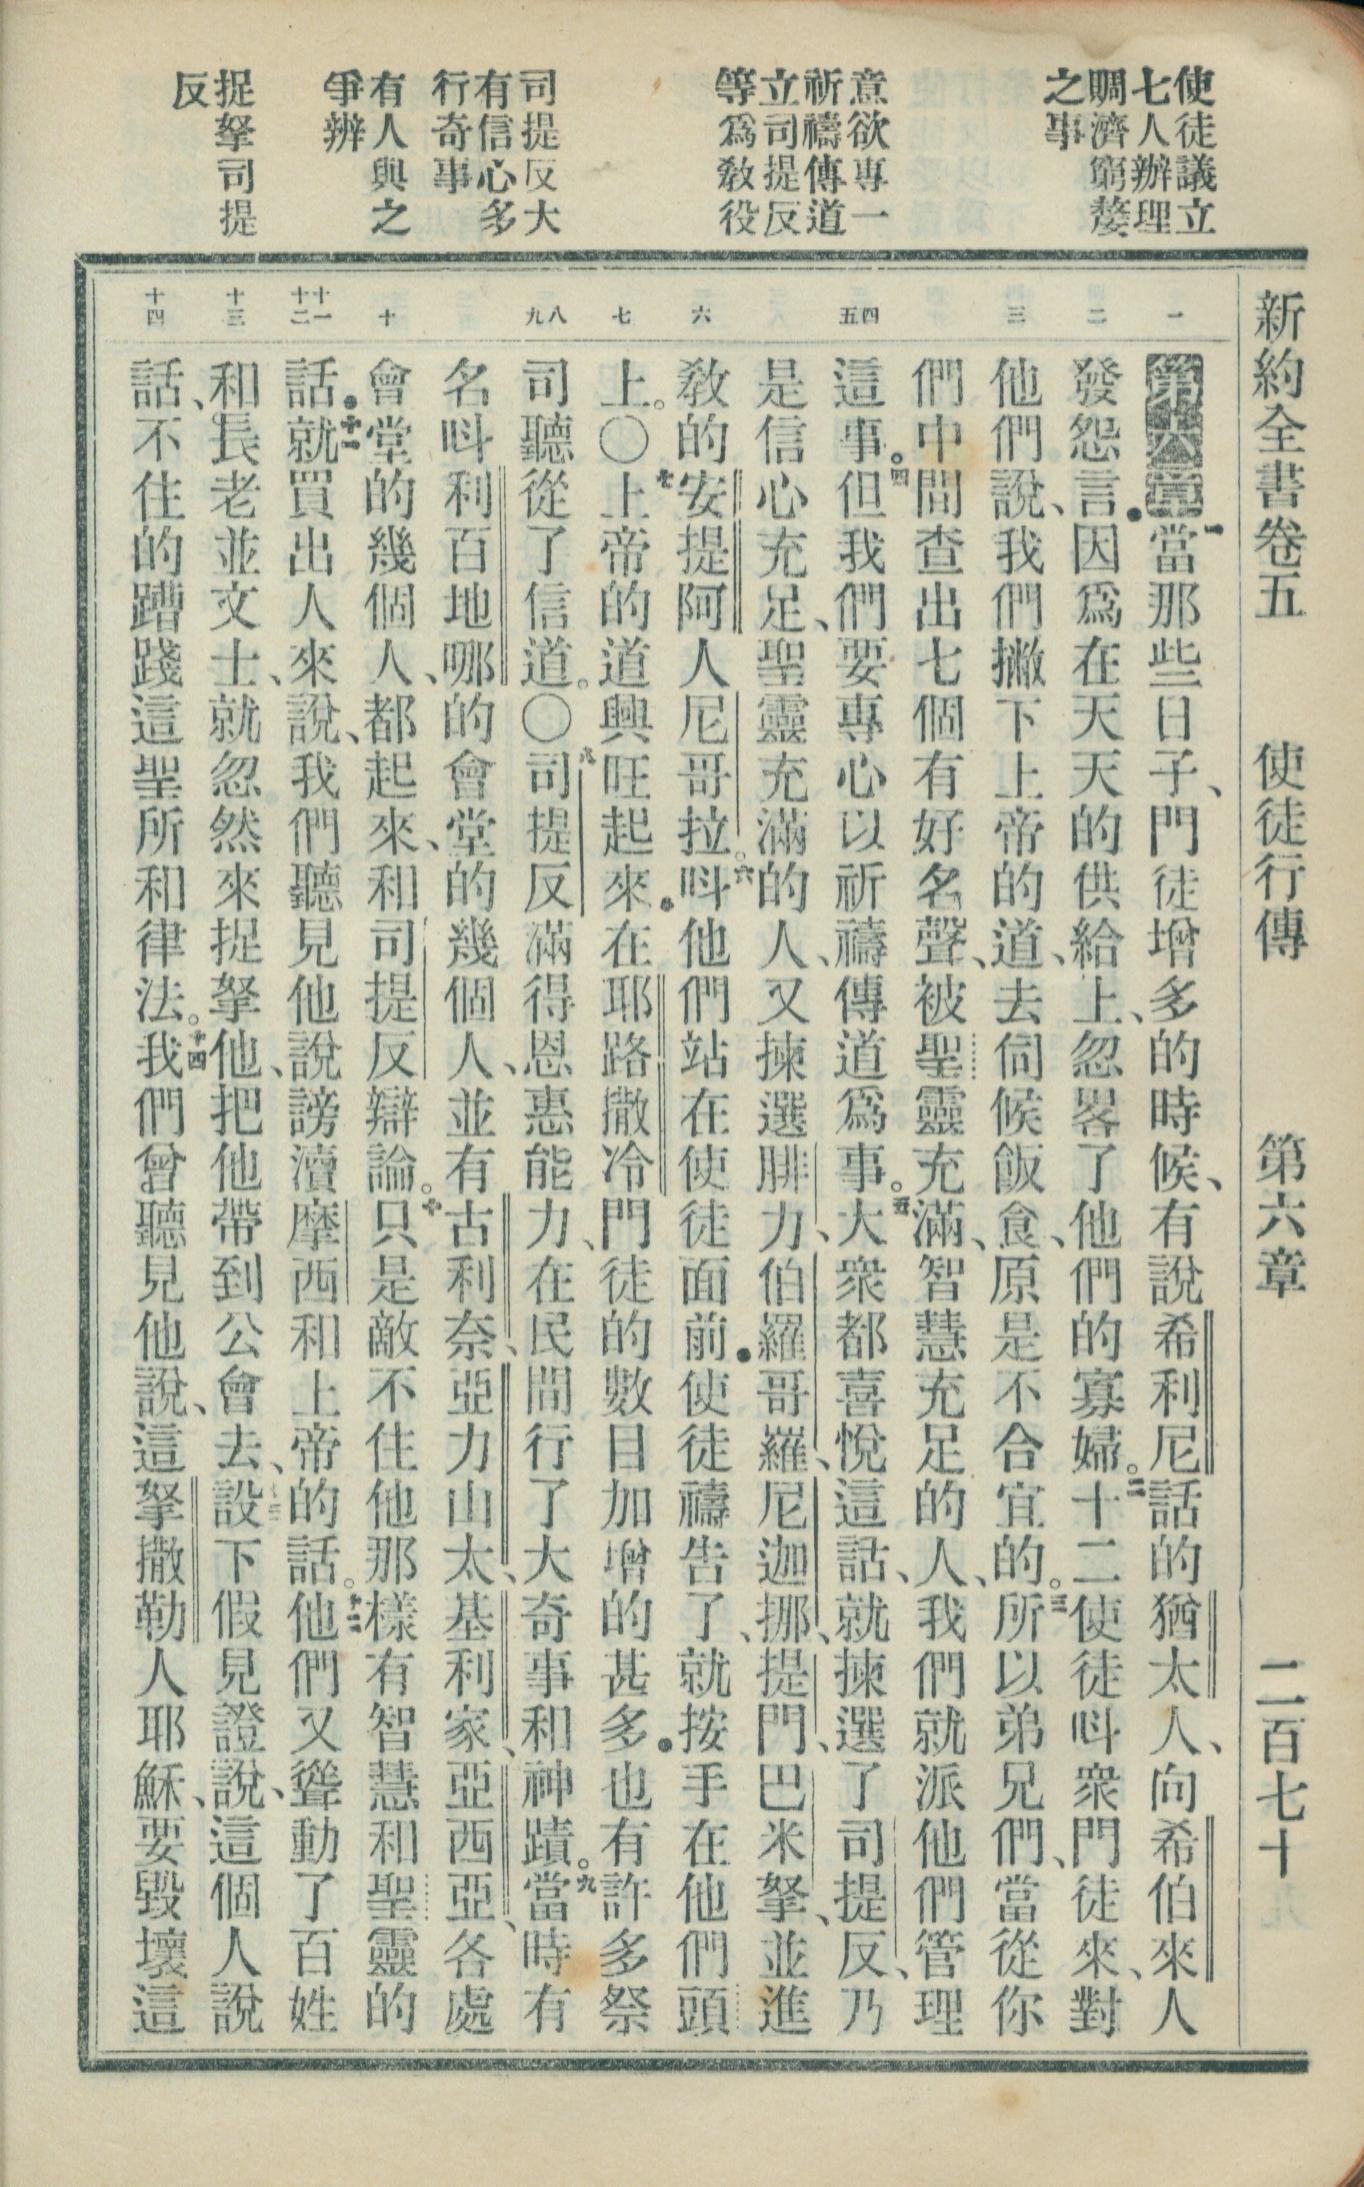 新約全書卷五　使徒行傳　第六章　二百七十
使徒議立
七人辦理
賙濟窮嫠
之事
意欲專一
祈禱傳道
立司提反
等爲敎役
司提反大
有信心多
行奇事
有人與之
爭辨
捉拏司提
反
一
二
三
四五
六
七
八九
十
十一十二
十三
十四
第六章一當那些日子、門徒增多的時候、有說希利尼話的猶太人、向希伯來人
發怨言●因爲在天天的供給上、忽畧了他們的寡婦。二十二使徒呌衆門徒來、對
他們說、我們撇下上帝的道、去伺候飯食、原是不合宜的。三所以弟兄們、當從你
們中間查出七個有好名聲、被聖靈充滿、智慧充足的人、我們就派他們管理
這事。四但我們要專心以祈禱傳道爲事。五大衆都喜悅這話、就揀選了司提反、乃
是信心充足、聖靈充滿的人、又揀選腓力、伯羅哥羅、尼迦挪、提門、巴米拏、並進
敎的安提阿人尼哥拉。六呌他們站在使徒面前●使徒禱告了、就按手在他們頭
上。〇七上帝的道興旺起來●在耶路撒冷門徒的數目加增的甚多●也有許多祭
司聽從了信道。〇八司提反滿得恩惠能力、在民間行了大奇事和神蹟。九當時有
名呌利百地哪的會堂的幾個人、並有古利奈、亞力山太、基利家、亞西亞、各處
會堂的幾個人、都起來、和司提反辯論。十只是敵不住他那樣有智慧和聖靈的
話●十一就買出人來說、我們聽見他說謗瀆摩西和上帝的話。十二他們又聳動了百姓
和長老並文士、就忽然來捉拏他、把他帶到公會去、十三設下假見證說、這個人說
話、不住的蹧踐這聖所和律法。十四我們曾聽見他說、這拏撒勒人耶穌、要毀壞這